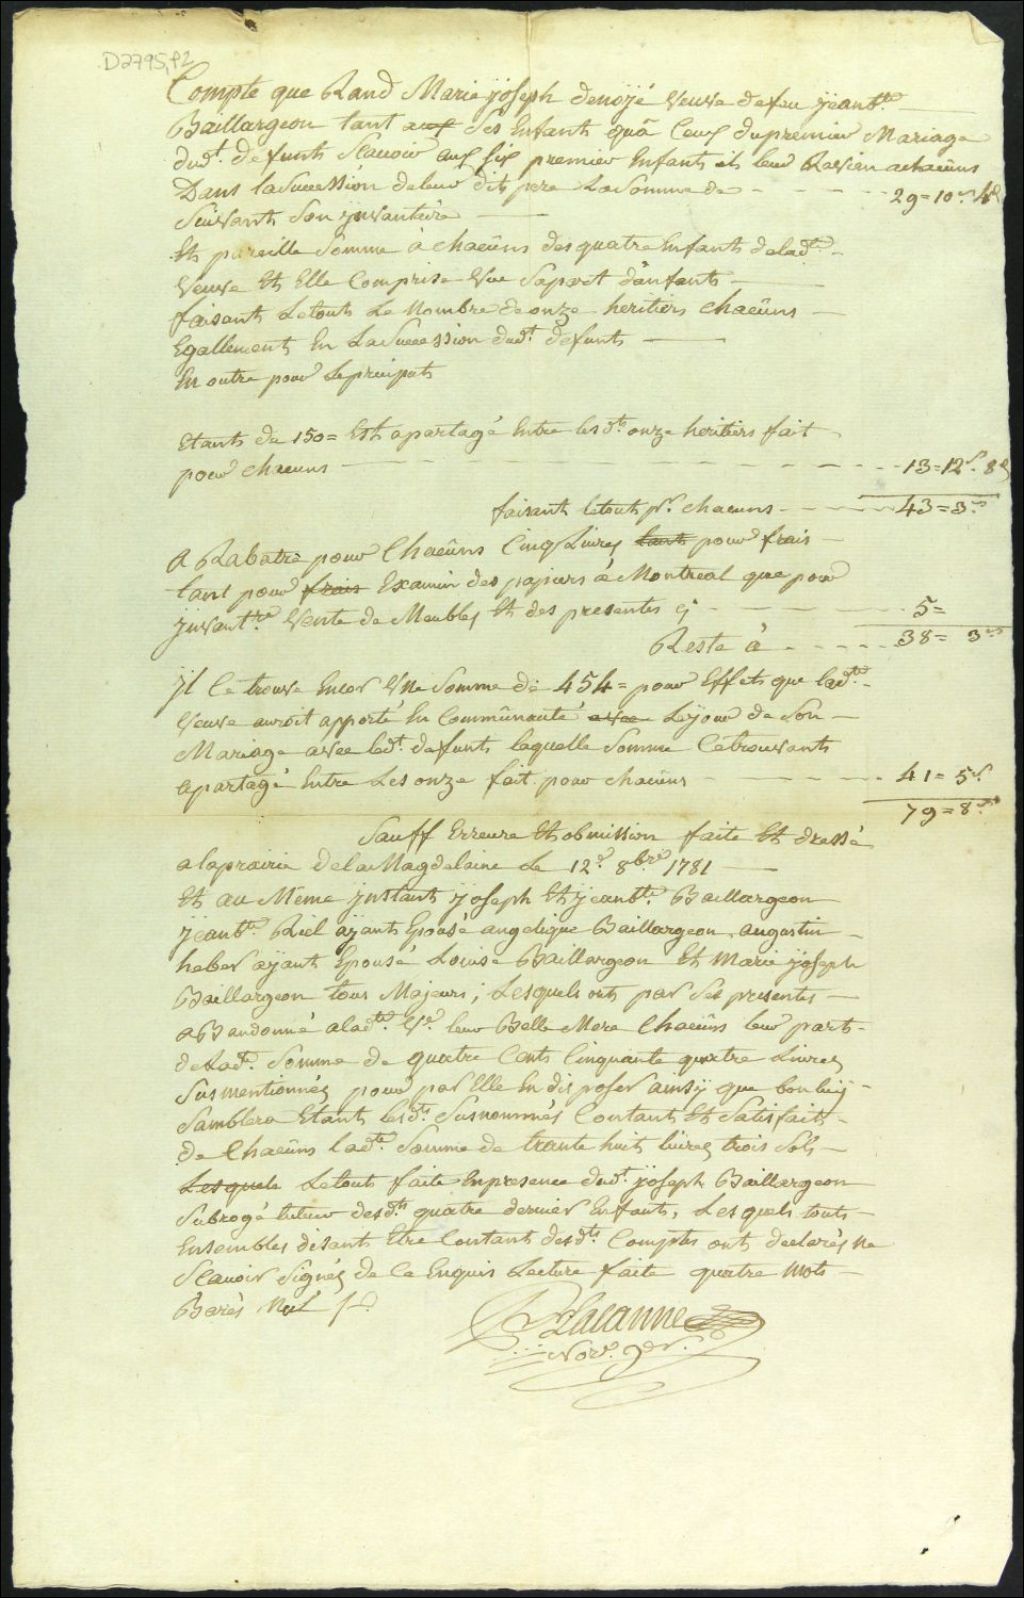 D2795, P2
Compte que Rand Marie yoseph denoyé veuve defeu yeanbte
Baillargeon tant aux ses Enfants quâ Ceux dupremier Mariage
dudt. defunts Scauoir aux six premier Enfants il leur Revien achaëuns
Dans lasuccession deleur dit pere La Somme de - - - 29=10s 4d
Suivants Son ynvanteire
Et pareille Somme à chaëuns des quatre Enfants deladte
Veuve Et Elle Comprise Vue Sapart d'anfants
faisants Letouts Le Nombre de onze heritiers chaëuns
Egallements En La Succession dudt. defunts
En outre pour Lepreciputs
Etants de 150= Est apartagé Entre lesdts onze heritiers fait
pour chacuns - - - 13=12s. 8d
faisants letouts pr. chacuns - - - 43=3s
A Rabatre pour Chaëuns Cinq Livres tants pour frais
tant pour frais Examin des papiers à Montreal que pour
ynvantre Vente de Meubles Et des presentes cy - - - 5=
Reste à - - - 38= 3s
yl Ce trouve Encor Une Somme de 454= pour Effets que ladte
Veuve auroit apporté En Commûnauté avec Lejour de Son
Mariage avec ledt. defunts laquelle Somme Cetrouvants
apartagé Entre Les onze fait pour chaëuns - - - 41= 5s
79=8s
Sauff Erreure Et obmission faite Et dressé
alaprairie delaMagdelaine Le 12e 8bre 1781
Et au Même ynstant yoseph Et yeanbte Baillargeon
yeanbte Riel ayants Epousé angelique Baillargeon, augustin
heber ayants Epousé Louise Baillargeon Et Marie yoseph
Baillargeon tous Majeurs; Lesquels onts par Ses presentes
aBandonné aladte Ve. leur Belle Mere Chaëuns leur parts
deLadte Somme de quatre Cents Cinquante quatre Livres
Susmentionnés pour par Elle En disposer ainsy que bon luy
Samblera Etant lesdts Susnommés Contant Et Satisfaits
de Chaëuns ladte Somme de trante huit livres trois Sols
Lesquels Letouts faite Enpresence dudt yoseph Baillargeon
Subrogé tuteur desdts quatre dernier Enfants, Lesquels touts
Ensembles disants Etre Contants desdts Comptes onts declarés Ne
Scauoir Signés de Ce Enquis Lecture faite quatre Mots
Barés Nul
Lalanne
Nore